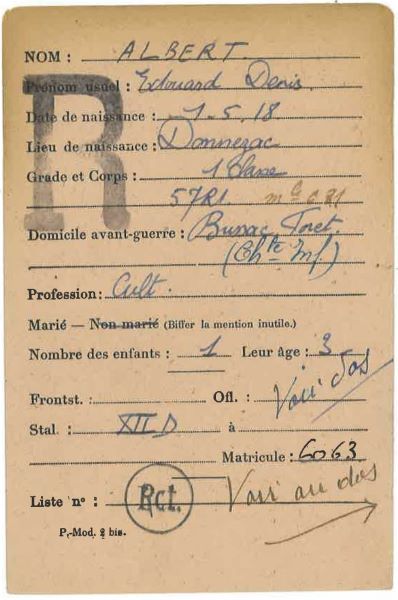 NOM : ALBERT
R
Prénom usuel : Edouard Denis.
Date de naissance : 1.5.18
Lieu de naissance : Donnezac
Grade et Corps : 1 Classe
57RI
Domicile avant-guerre : Bussac Foret.
(Chte Inf)
Profession : Cult.
Marié — Non marié (Biffer la mention inutile.)
Nombre des enfants : 1 Leur âge : 3
Frontst. : Ofl. : Voir dos
Stal. : XII D à
Matricule : 6063
Liste nº : Rct. Voir au dos
P.-Mod. 2 bis.